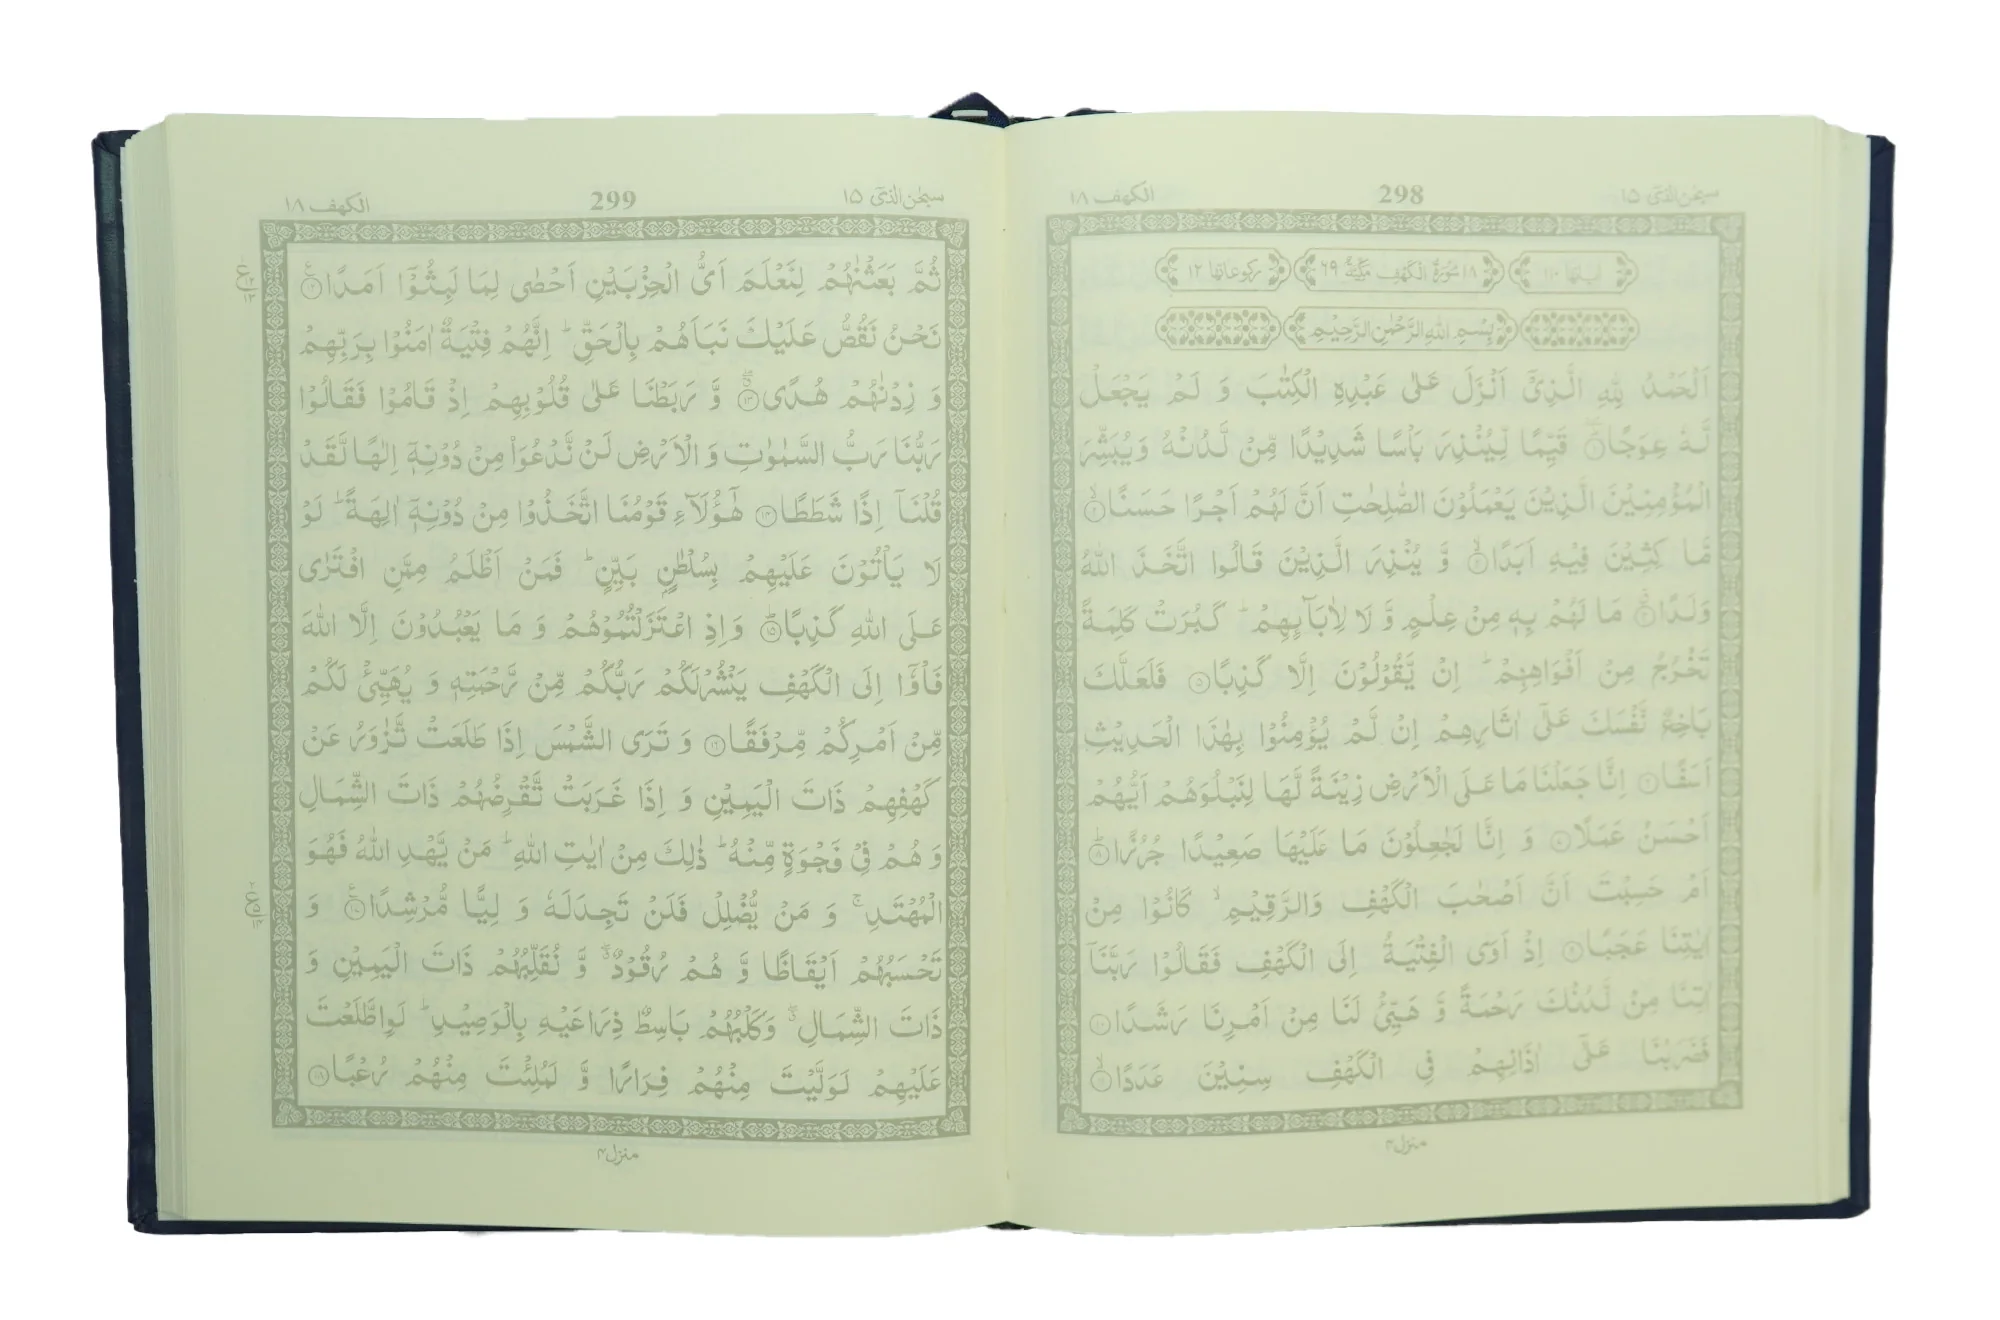 سبحٰن الذیٓ ١٥
298
الكهف ١٨
اٰیاتها ١١٠
١٨ سُوْرَةُ الْكَهْفِ مَكِّيَّةٌ ٦٩
رکوعاتها ١٢
بِسْمِ اللهِ الرَّحْمٰنِ الرَّحِيْمِ
اَلْحَمْدُ لِلّٰهِ الَّذِيْٓ اَنْزَلَ عَلٰى عَبْدِهِ الْكِتٰبَ وَ لَمْ يَجْعَلْ
لَّهٗ عِوَجًا ۜ ١ قَيِّمًا لِّيُنْذِرَ بَاْسًا شَدِيْدًا مِّنْ لَّدُنْهُ وَيُبَشِّرَ
الْمُؤْمِنِيْنَ الَّذِيْنَ يَعْمَلُوْنَ الصّٰلِحٰتِ اَنَّ لَهُمْ اَجْرًا حَسَنًا ۙ ٢
مَّا كِثِيْنَ فِيْهِ اَبَدًا ۙ ٣ وَّ يُنْذِرَ الَّذِيْنَ قَالُوا اتَّخَذَ اللّٰهُ
وَلَدًا ۗ ٤ مَا لَهُمْ بِهٖ مِنْ عِلْمٍ وَّ لَا لِاٰبَآىِٕهِمْ ؕ كَبُرَتْ كَلِمَةً
تَخْرُجُ مِنْ اَفْوَاهِهِمْ ؕ اِنْ يَّقُوْلُوْنَ اِلَّا كَذِبًا ٥ فَلَعَلَّكَ
بَاخِعٌ نَّفْسَكَ عَلٰٓى اٰثَارِهِمْ اِنْ لَّمْ يُؤْمِنُوْا بِهٰذَا الْحَدِيْثِ
اَسَفًا ٦ اِنَّا جَعَلْنَا مَا عَلَى الْاَرْضِ زِيْنَةً لَّهَا لِنَبْلُوَهُمْ اَيُّهُمْ
اَحْسَنُ عَمَلًا ٧ وَ اِنَّا لَجٰعِلُوْنَ مَا عَلَيْهَا صَعِيْدًا جُرُزًا ؕ ٨
اَمْ حَسِبْتَ اَنَّ اَصْحٰبَ الْكَهْفِ وَالرَّقِيْمِ ۙ كَانُوْا مِنْ
اٰيٰتِنَا عَجَبًا ٩ اِذْ اَوَى الْفِتْيَةُ اِلَى الْكَهْفِ فَقَالُوْا رَبَّنَآ
اٰتِنَا مِنْ لَّدُنْكَ رَحْمَةً وَّ هَيِّئْ لَنَا مِنْ اَمْرِنَا رَشَدًا ١٠
فَضَرَبْنَا عَلٰٓى اٰذَانِهِمْ فِى الْكَهْفِ سِنِيْنَ عَدَدًا ۙ ١١
منزل ٤
سبحٰن الذیٓ ١٥
299
الكهف ١٨
ثُمَّ بَعَثْنٰهُمْ لِنَعْلَمَ اَىُّ الْحِزْبَيْنِ اَحْصٰى لِمَا لَبِثُوْٓا اَمَدًا ١٢
نَحْنُ نَقُصُّ عَلَيْكَ نَبَاَهُمْ بِالْحَقِّ ؕ اِنَّهُمْ فِتْيَةٌ اٰمَنُوْا بِرَبِّهِمْ
وَ زِدْنٰهُمْ هُدًى ١٣ وَّ رَبَطْنَا عَلٰى قُلُوْبِهِمْ اِذْ قَامُوْا فَقَالُوْا
رَبُّنَا رَبُّ السَّمٰوٰتِ وَ الْاَرْضِ لَنْ نَّدْعُوَا۟ مِنْ دُوْنِهٖٓ اِلٰهًا لَّقَدْ
قُلْنَآ اِذًا شَطَطًا ١٤ هٰٓؤُلَآءِ قَوْمُنَا اتَّخَذُوْا مِنْ دُوْنِهٖٓ اٰلِهَةً ؕ لَوْ
لَا يَاْتُوْنَ عَلَيْهِمْ بِسُلْطٰنٍۭ بَيِّنٍ ؕ فَمَنْ اَظْلَمُ مِمَّنِ افْتَرٰى
عَلَى اللّٰهِ كَذِبًا ؕ ١٥ وَاِذِ اعْتَزَلْتُمُوْهُمْ وَ مَا يَعْبُدُوْنَ اِلَّا اللّٰهَ
فَاْوٗٓا اِلَى الْكَهْفِ يَنْشُرْ لَكُمْ رَبُّكُمْ مِّنْ رَّحْمَتِهٖ وَ يُهَيِّئْ لَكُمْ
مِّنْ اَمْرِكُمْ مِّرْفَقًا ١٦ وَ تَرَى الشَّمْسَ اِذَا طَلَعَتْ تَّزٰوَرُ عَنْ
كَهْفِهِمْ ذَاتَ الْيَمِيْنِ وَ اِذَا غَرَبَتْ تَّقْرِضُهُمْ ذَاتَ الشِّمَالِ
وَ هُمْ فِيْ فَجْوَةٍ مِّنْهُ ؕ ذٰلِكَ مِنْ اٰيٰتِ اللّٰهِ ؕ مَنْ يَّهْدِ اللّٰهُ فَهُوَ
الْمُهْتَدِ ۚ وَ مَنْ يُّضْلِلْ فَلَنْ تَجِدَ لَهٗ وَ لِيًّا مُّرْشِدًا ١٧ وَ
تَحْسَبُهُمْ اَيْقَاظًا وَّ هُمْ رُقُوْدٌ ۖ وَّ نُقَلِّبُهُمْ ذَاتَ الْيَمِيْنِ وَ
ذَاتَ الشِّمَالِ ۖ وَكَلْبُهُمْ بَاسِطٌ ذِرَاعَيْهِ بِالْوَصِيْدِ ؕ لَوِ اطَّلَعْتَ
عَلَيْهِمْ لَوَلَّيْتَ مِنْهُمْ فِرَارًا وَّ لَمُلِئْتَ مِنْهُمْ رُعْبًا ١٨
منزل ٤